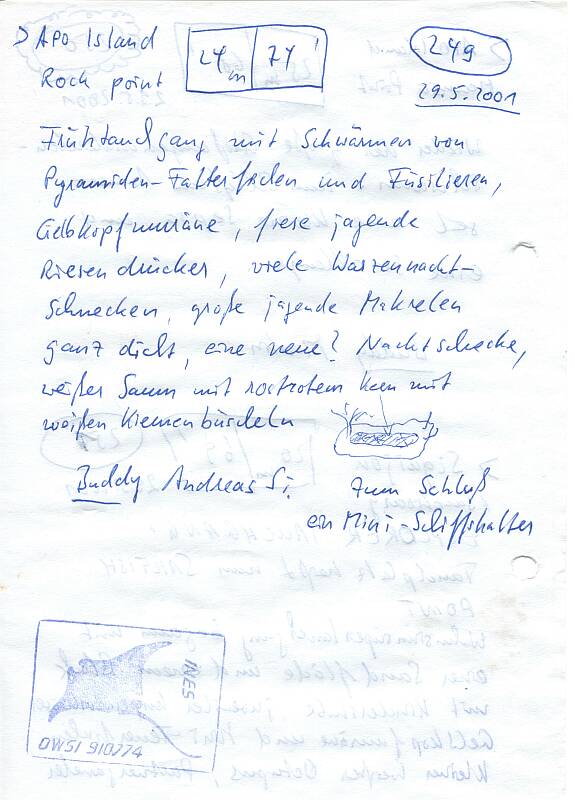 > APO Island
Rock point
24 m | 71'
249
29.5.2001
Frühtauchgang mit Schwärmen von
Pyramiden-Falterfischen und Füsilieren,
Gelbkopfmuräne, freie jagende
Riesendrücker, viele Warzennackt-
Schnecken, große jagende Makrelen
ganz dicht, eine neue? Nacktschecke,
weißer Saum mit rostrotem Keen mit
weißen Kiemenbüscheln
Buddy Andreas Si.
zum Schluß
ein Mini-Schiffshalter
INES
OWSI 910774